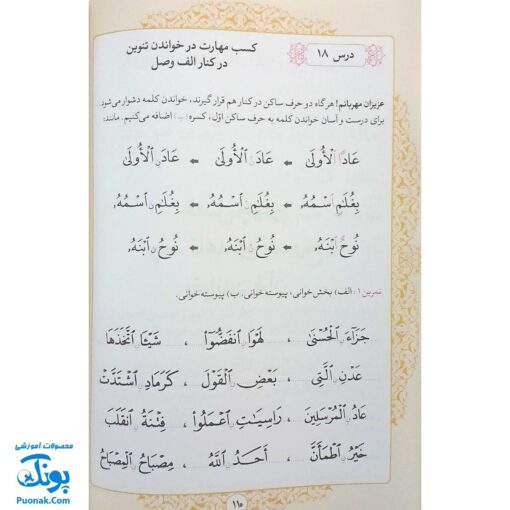 درس ۱۸
کسب مهارت در خواندن تنوین
در کنار الف وصل
عزیزان مهربانم! هرگاه دو حرف ساکن در کنار هم قرار گیرند، خواندن کلمه دشوار می‌شود.
برای درست و آسان خواندن کلمه به حرف ساکن اوّل، کسره (ـِ) اضافه می‌کنیم. مانند:
عَادًا ٱلْأُولَىٰ ← عَادَنِ ٱلْأُولَىٰ ← عَادَنِ ٱلْأُولَىٰ
بِغُلَٰمٍ ٱسْمُهُۥ ← بِغُلَٰمِنِ ٱسْمُهُۥ ← بِغُلَٰمِنِ ٱسْمُهُۥ
نُوحٌ ٱبْنَهُۥ ← نُوحُنِ ٱبْنَهُۥ ← نُوحُنِ ٱبْنَهُۥ
تمرین ۱: الف) بخش‌خوانی، پیوسته‌خوانی. ب) پیوسته‌خوانی.
جَزَآءً ٱلْحُسْنَىٰ ، لَهْوًا ٱنفَضُّوٓا۟ ، شَيْـًٔا ٱتَّخَذَهَا
عَدْنٍ ٱلَّتِى ، بَعْضٍ ٱلْقَوْلَ ، كَرَمَادٍ ٱشْتَدَّتْ
عَادٌ ٱلْمُرْسَلِينَ ، رَاسِيَٰتٍ ٱعْمَلُوٓا۟ ، فِتْنَةٌ ٱنقَلَبَ
خَيْرٌ ٱطْمَأَنَّ ، أَحَدٌ ٱللَّهُ ، مِصْبَاحٌ ٱلْمِصْبَاحُ
۱۱۰
محصولات آموزشی
پونک
Puonak.Com